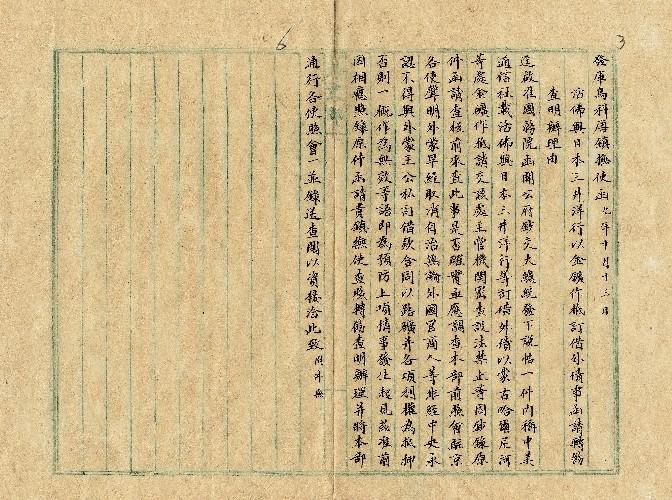 3
6
發庫烏科唐鎮撫使函 九年十月十三日
活佛與日本三井洋行以金鑛作抵訂借外債事函請轉飭
查明辦理由
逕啟者准國務院函開公府鈔交大總統發下說帖一件內稱中美
通信社載活佛與日本三井洋行等訂借外債以蒙古哈爾尼河
等處金鑛作抵請交該處主管機關嚴查設法禁止等因鈔錄原
件函請查核前來查此事是否確實亟應調查本部前照會駐京
各使聲明外蒙早經取消自治無論外國官商人等非經中央承
認不得與外蒙王公私訂借款合同以路鑛并各項利權為抵押
否則一概作為無效等語即為預防上項情事發生起見茲准前
因相應照錄原件函請貴鎮撫使查照轉飭查明辦理并將本部
通行各使照會一並錄送查閱以資接洽此致 附件無